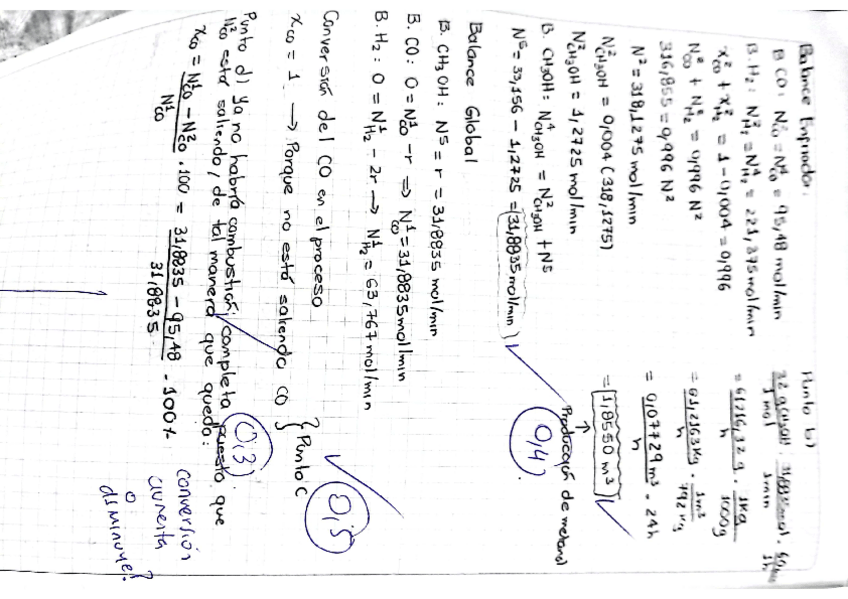 Balance Enfriador:
B CO: N²co = N⁴co = 95,48 mol/min
B. H₂: N²H₂ = N⁴H₂ = 221,375 mol/min
x²co + x²H₂ = 1 - 0,004 = 0,996
N²co + N²H₂ = 0,996 N²
316,855 = 0,996 N²
N² = 318,1275 mol/min
N²CH₃OH = 0,004 (318,1275)
N²CH₃OH = 1,2725 mol/min
B. CH₃OH: N⁴CH₃OH = N²CH₃OH + N⁵
N⁵ = 33,156 - 1,2725 = 31,8835 mol/min
Balance Global
B. CH₃OH: N⁵ = r = 31,8835 mol/min
B. CO: 0 = N¹co - r => N¹co = 31,8835 mol/min
B. H₂: 0 = N¹H₂ - 2r → N¹H₂ = 63,767 mol/min
Conversión del CO en el proceso
xco = 1 → Porque no está saliendo CO } Punto C
0,5
Punto d) Ya no habría combustión completa puesto que
N²co está saliendo, de tal manera que queda:
0,3
xco = N¹co - N²co / N¹co · 100 = 31,8835 - 95,48 / 31,8835 · 100%
conversión
aumenta
o
disminuye?
Punto b)
32 g CH₃OH / 1 mol · 31,8835 mol / 1 min · 60 min / 1h
= 61216,32 g / h · 1Kg / 1000g
= 61,2163 Kg / h · 1m³ / 792 Kg
= 0,07729 m³ / h · 24h
= 1,8550 m³
Producción de metanol
0,4